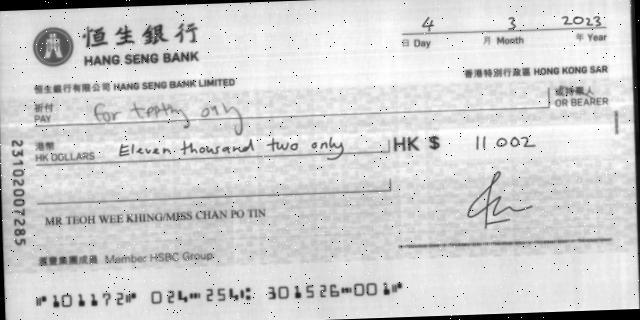 恒生銀行
HANG SENG BANK
4 3 2023
日 Day 月 Month 年 Year
恒生銀行有限公司 HANG SENG BANK LIMITED
香港特別行政區 HONG KONG SAR
祈付
PAY for only
或持票人
OR BEARER
港幣
HK DOLLARS Eleven thousand two only HK $ 11 002
MR TEOH WEE KHING/MISS CHAN PO TIN
滙豐集團成員 Member HSBC Group
23102007285
⑈101172⑈ 024⑉254⑆ 301526⑉001⑈